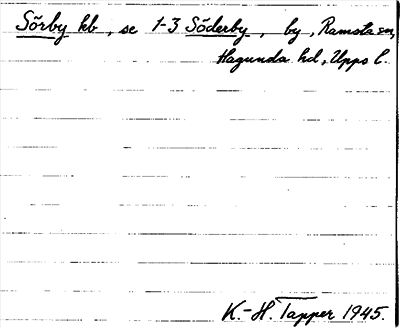 Sörby kb, se 1-3 Söderby, by, Ramsta sn,
Hagunda hd, Upps l.
K.-H. Tapper 1945.